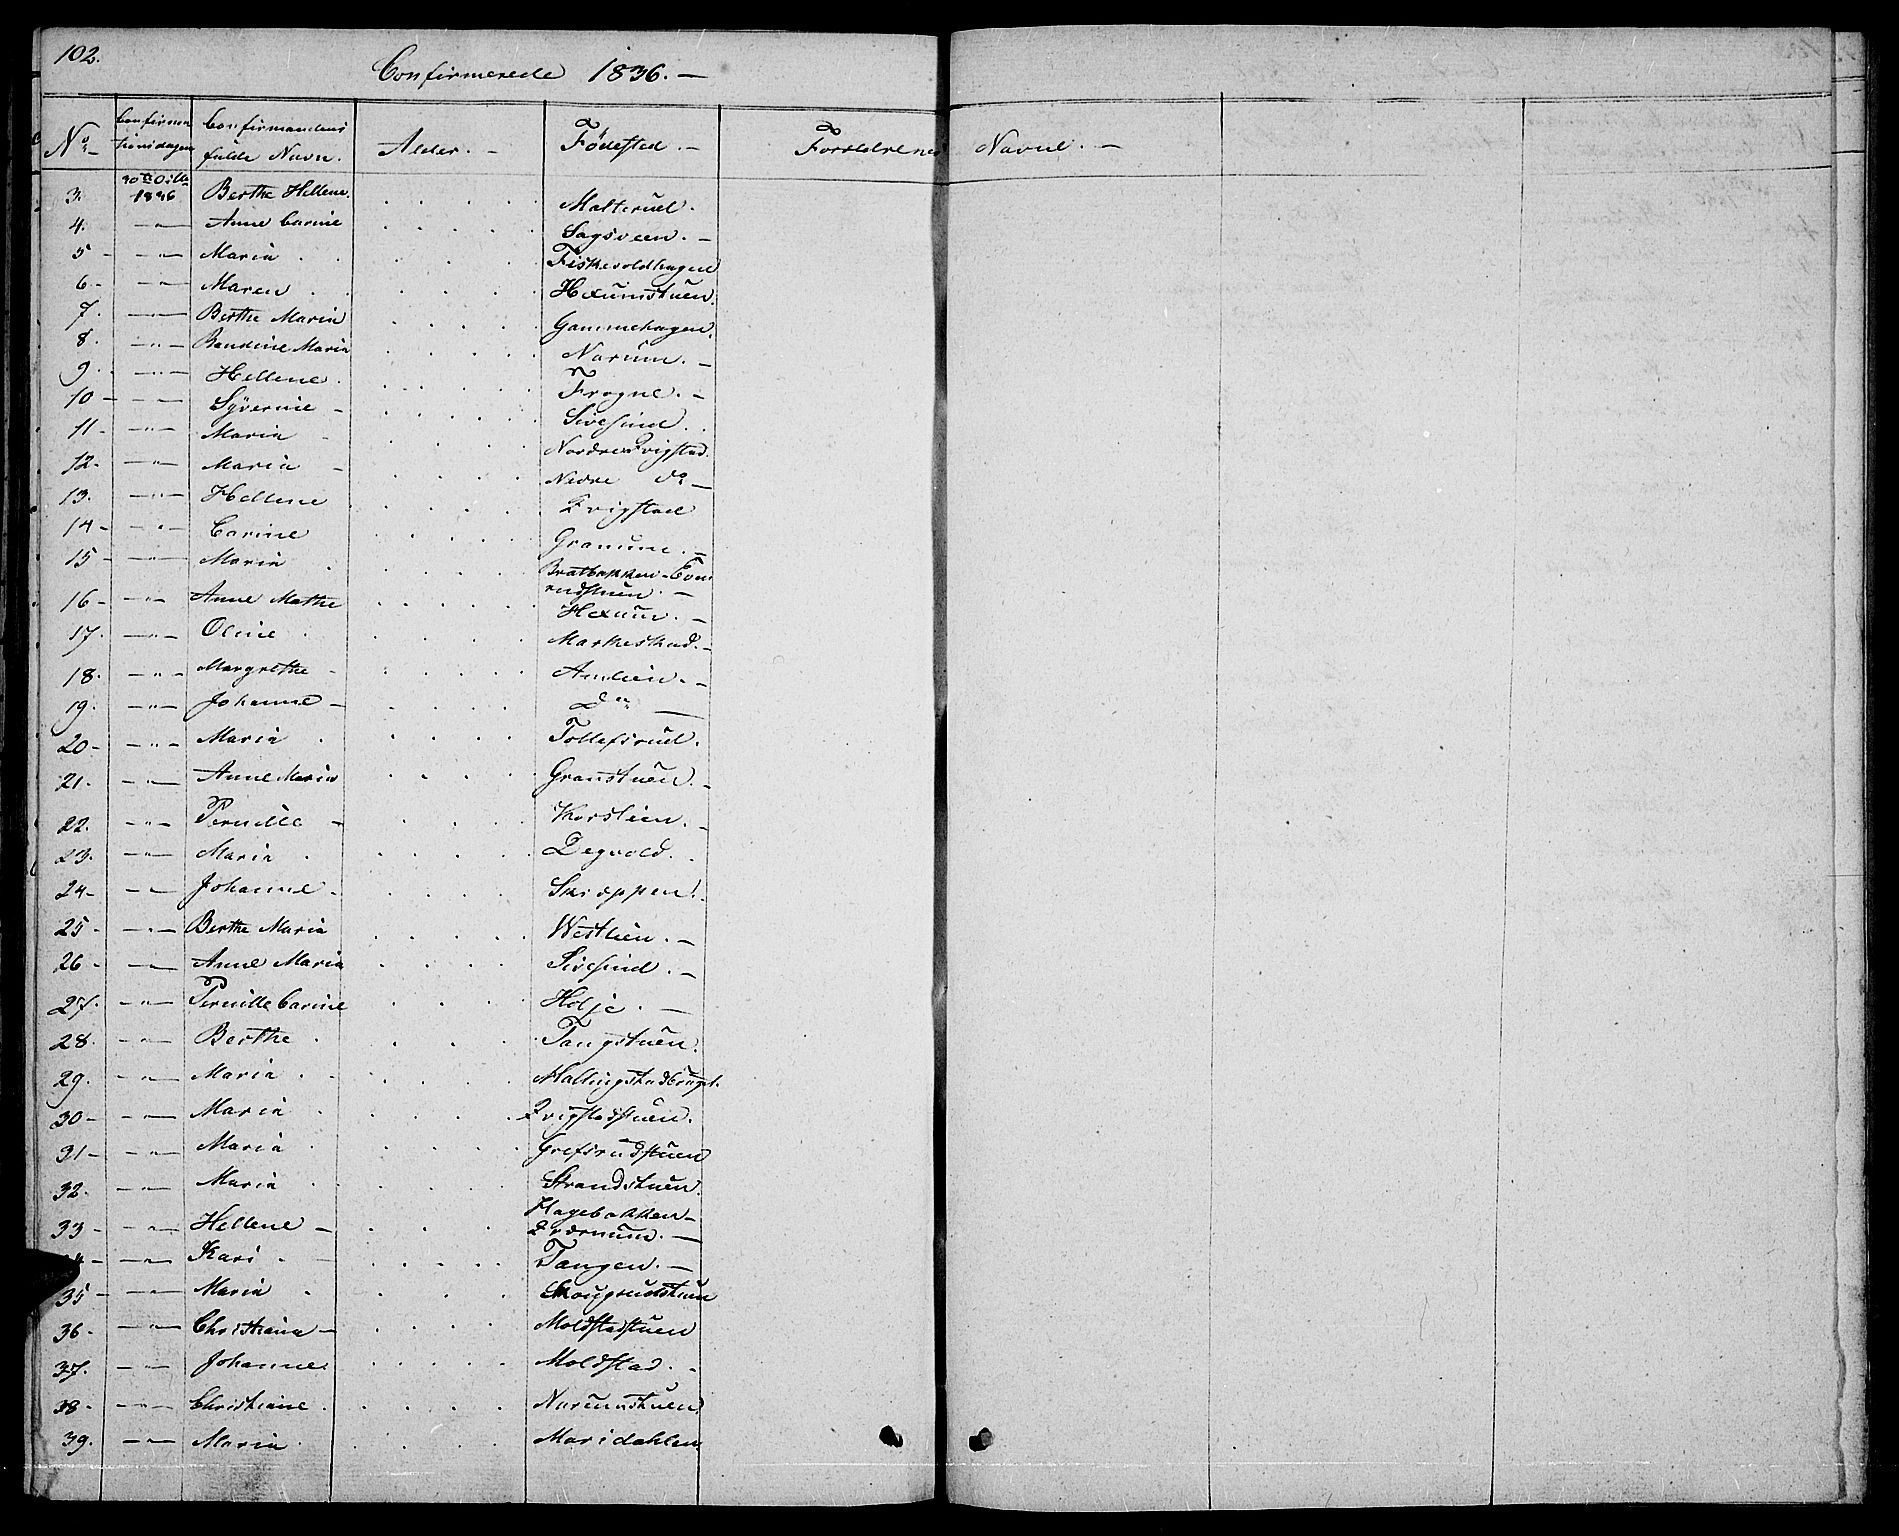 102.
Confirmerede 1836. —
No. — Confirmations dagen Confirmandens fulde Navn. Alder. — Fødested. — Forældrenes Navne. —
3. 30te Octbr 1836 Berthe Hellene. Malterud.
4. —"— Anne Carine Sagsveen. —
5 - —"— Maria Fiskevoldhagen
6. - —"— Maren Hexumstuen.
7. —"— Berthe Maria Gammehagen.
8. —"— Bendine Maria Narum. —
9. —"— Hellene. Frogne. —
10 - —"— Syverine - Sivesind.
11. - —"— Maria Nordre Qvigstad.
12. - —"— Maria - Nedre do —
13. —"— Hellene Qvigstad
14 - —"— Carine Granum. —
15 - —"— Maria Bratbakken -
rudstuen. —
16 - —"— Anne Mathe Hexum. —
17. —"— Oline Markestad. -
18. —"— Margrethe - Amlien. —
19. —"— Johanne - do —
20 - —"— Maria Tollefsrud.
21. —"— Anne Maria Granstuen. —
22. —"— Pernille - Korslien. —
23. —"— Maria Degvold.
24 - —"— Johanne - Skræppen!
25 - —"— Berthe Maria Westlien. —
26 - —"— Anne Maria Sivesind. —
27. —"— Pernille Carine Holje. —
28. —"— Berthe Tangstuen.
29. —"— Maria Hallingstadbraget.
30 - —"— Maria Qvigstadstuen.
31 - —"— Maria Grefsrudstuen
32. —"— Maria Strandstuen.
33 - —"— Hellene - Hagebakken -
Qværnum. —
—"— Kari - Tangen. —
35 - —"— Maria Skougrudstuen
36 - —"— Christiane - Moldstadstuen
37. —"— Johanne Moldstad. -
38 - —"— Christiane. Narumstuen
39. —"— Maria Maridahlen